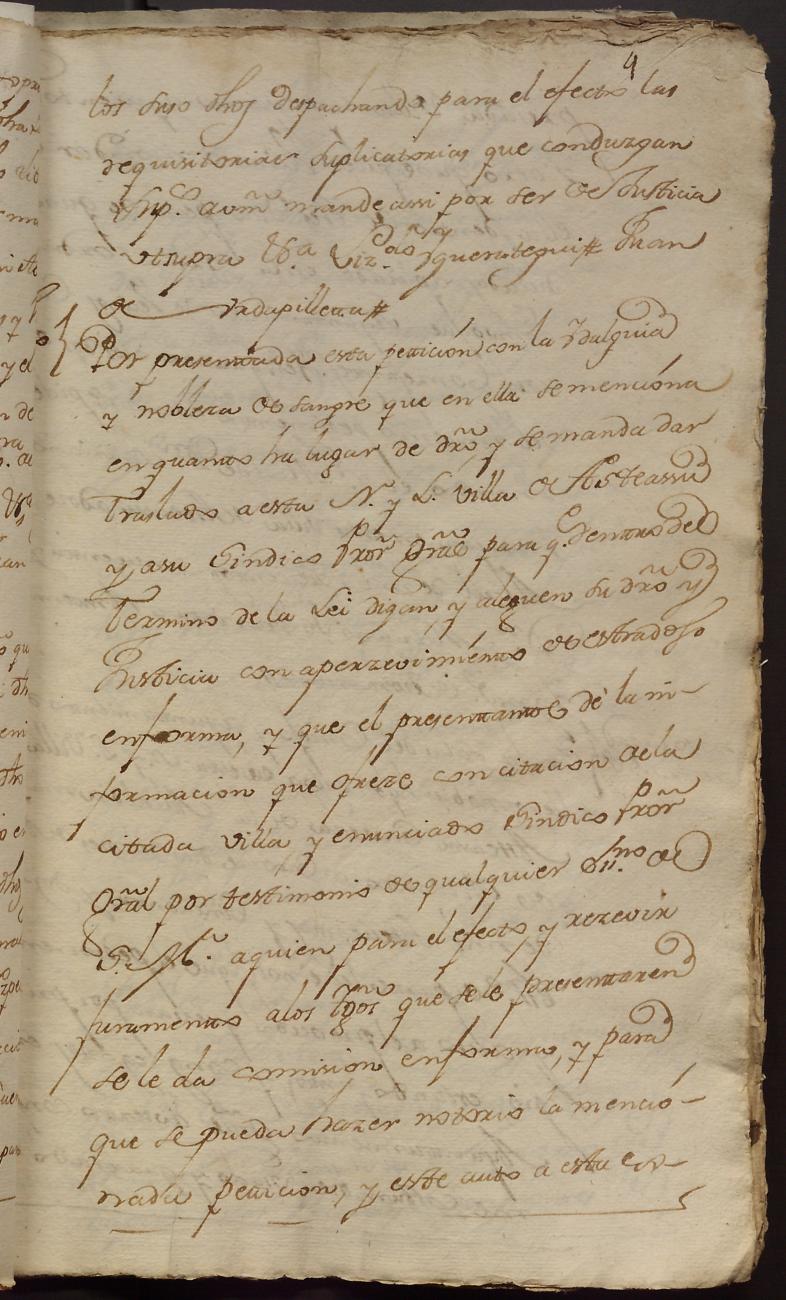 4
los suso dhos despachando para el efecto las
requisitorias suplicatorias que conduzgan
Supco. a vm. mande assi por ser de Justicia
Utsupra Juan
de Urdapilleta #
Por presentada esta petición con la Ydalguia
y nobleza de sangre que en ella se menciona
en quanto ha lugar de dro, y se manda dar
traslado a esta N. y L. villa de Asteasu
y a su Sindico Pror Gral para q. dentro del
termino de la Lei digan, y aleguen su dro y
Justicia con aperzevimiento de estrados
en forma, y que el presentante dé la in-
formacion que ofreze con citacion de la
citada villa, y enunciado Sindico Pror
Gral por testimonio de qualquier Ssno de
S. M. a quien para el efecto, y rezevir
juramento a los tgos que se le presentaren
se le da comision en forma, y para
que se pueda hazer notorio la mencio-
nada peticion, y este auto a esta